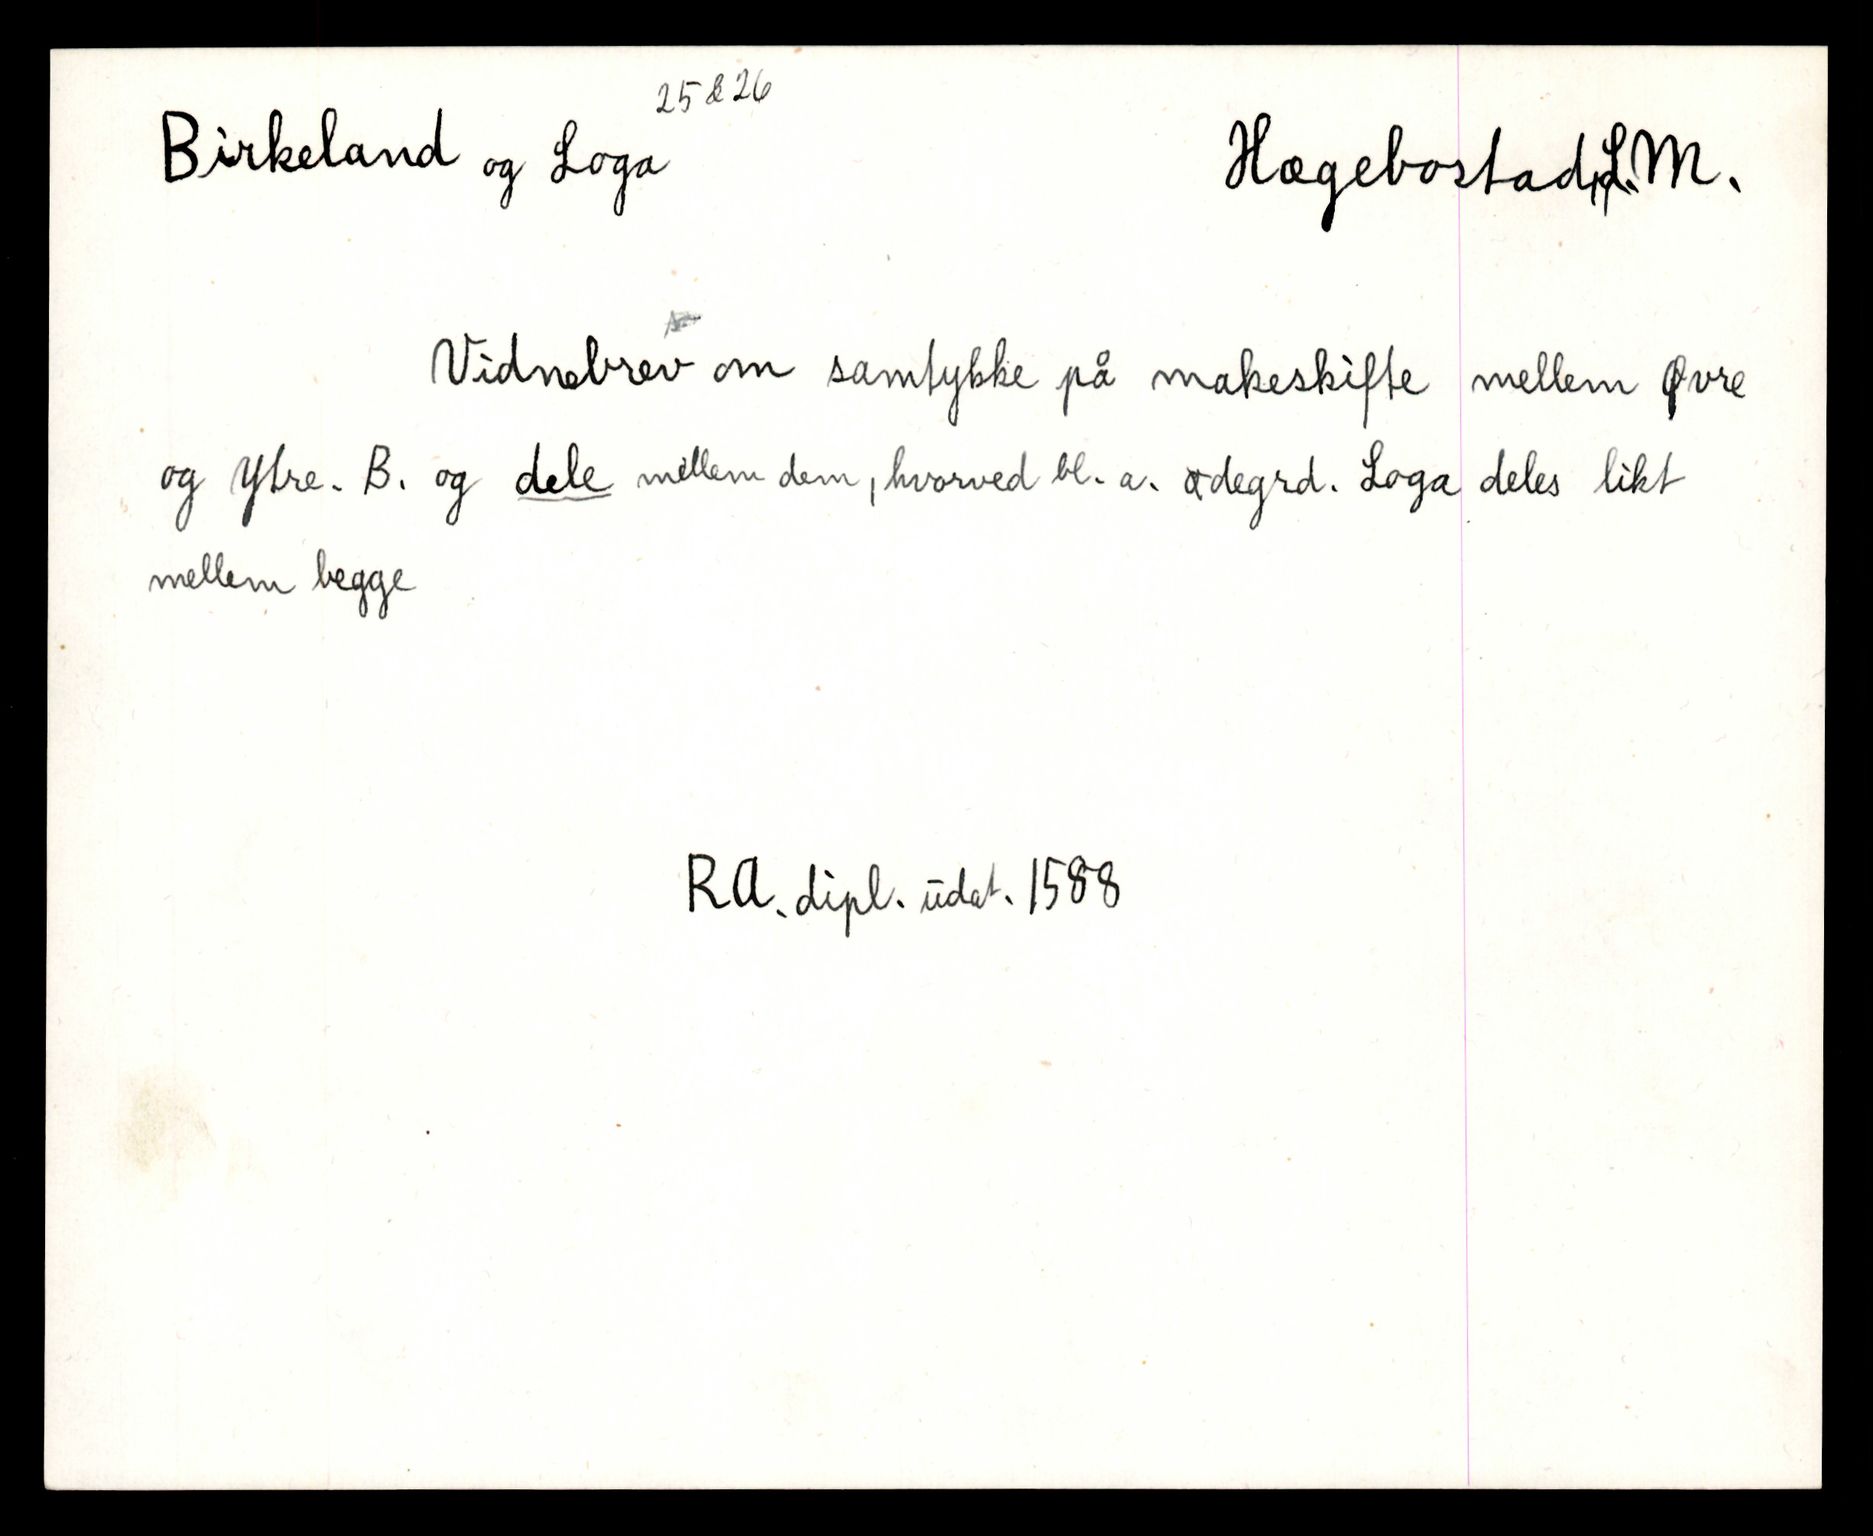 25 & 26
Birkeland og Loga Hægebostad, L.M.
Vidnebrev om samtykke på makeskifte mellem Øvre
og Ytre. B. og dele mellem dem, hvorved bl. a. ødegrd. Loga deles likt
mellem begge
RA. dipl. udat. 1588